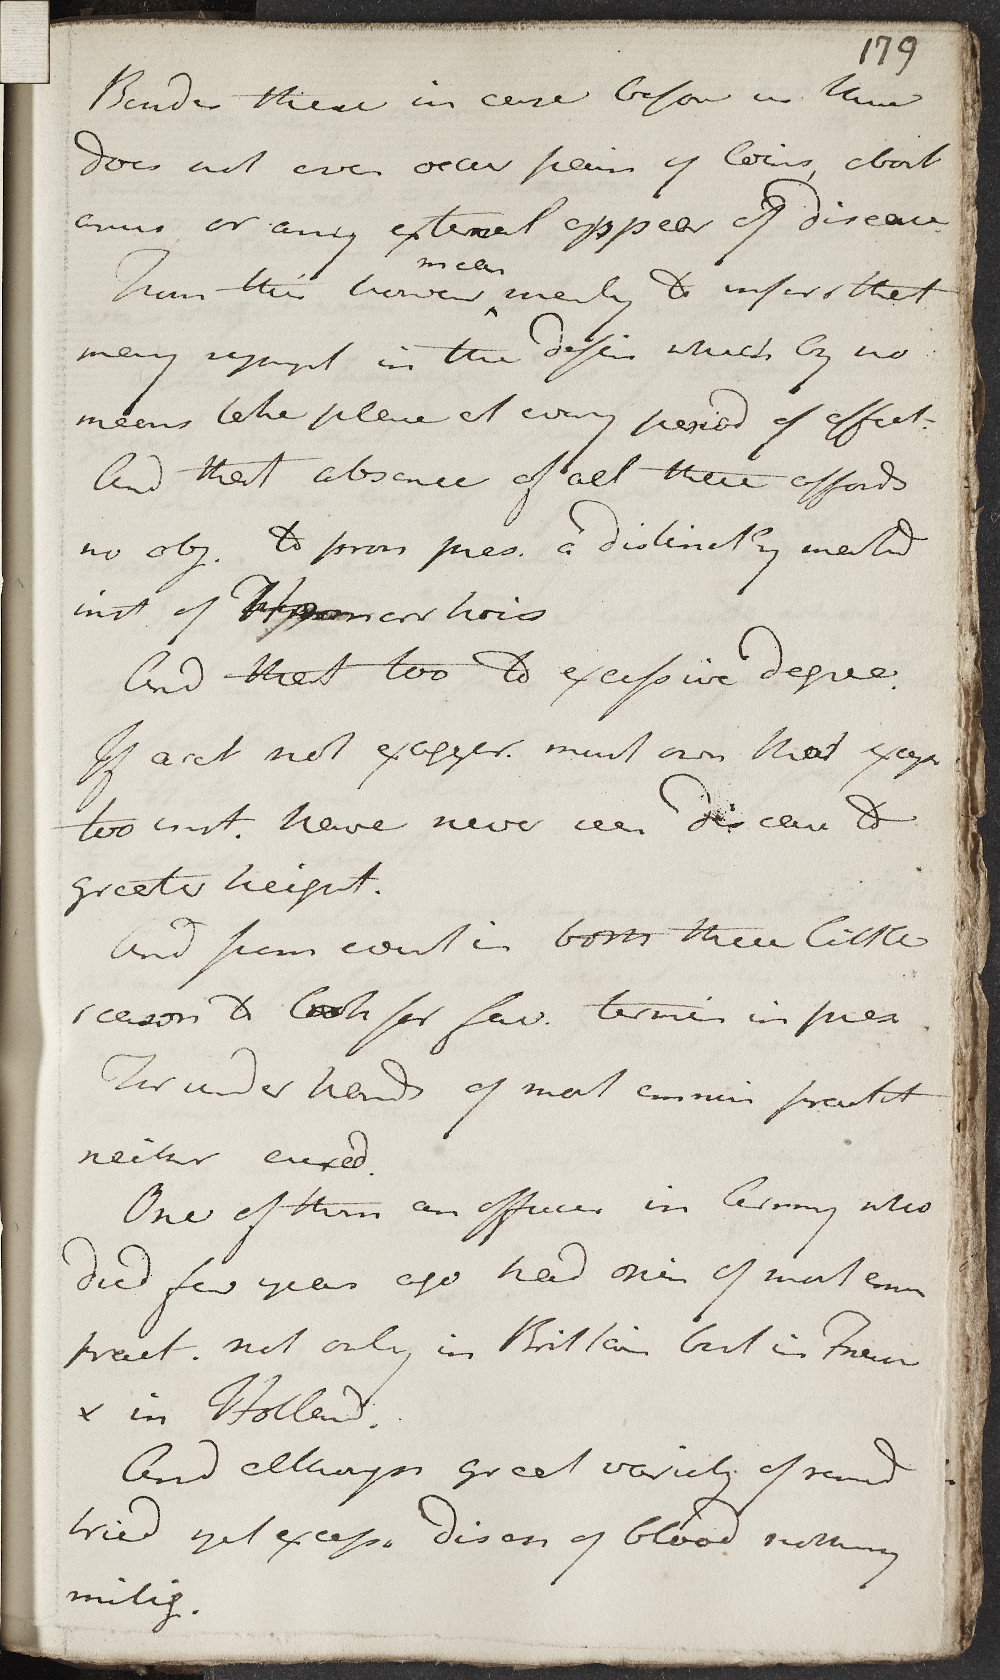 179
Besides these in case before us there
does not even occur pain of loins, about
anus or any external appear of disease
mean
From this however merely to infer that
many sympt in this defin which by no
means take place at every period of affect.
And that absence of all these affords
no obj. to pron pres. a distinctly marked
inst of Haemorrhois
And that too to excessive degree.
If acct not exagger. must own that excep
two inst. have never seen disease to
greater height.
And from event in both these little
reason to look for fav. termin in pres
For under hands of most eminen practit
neither cured.
One of them an officer in Army who
died few years ago had opin of most emin
pract. not only in Brittain but in Franc
& in Holland.
And although great variety of remed
tried yet excess. disch of blood nothing
mitig.